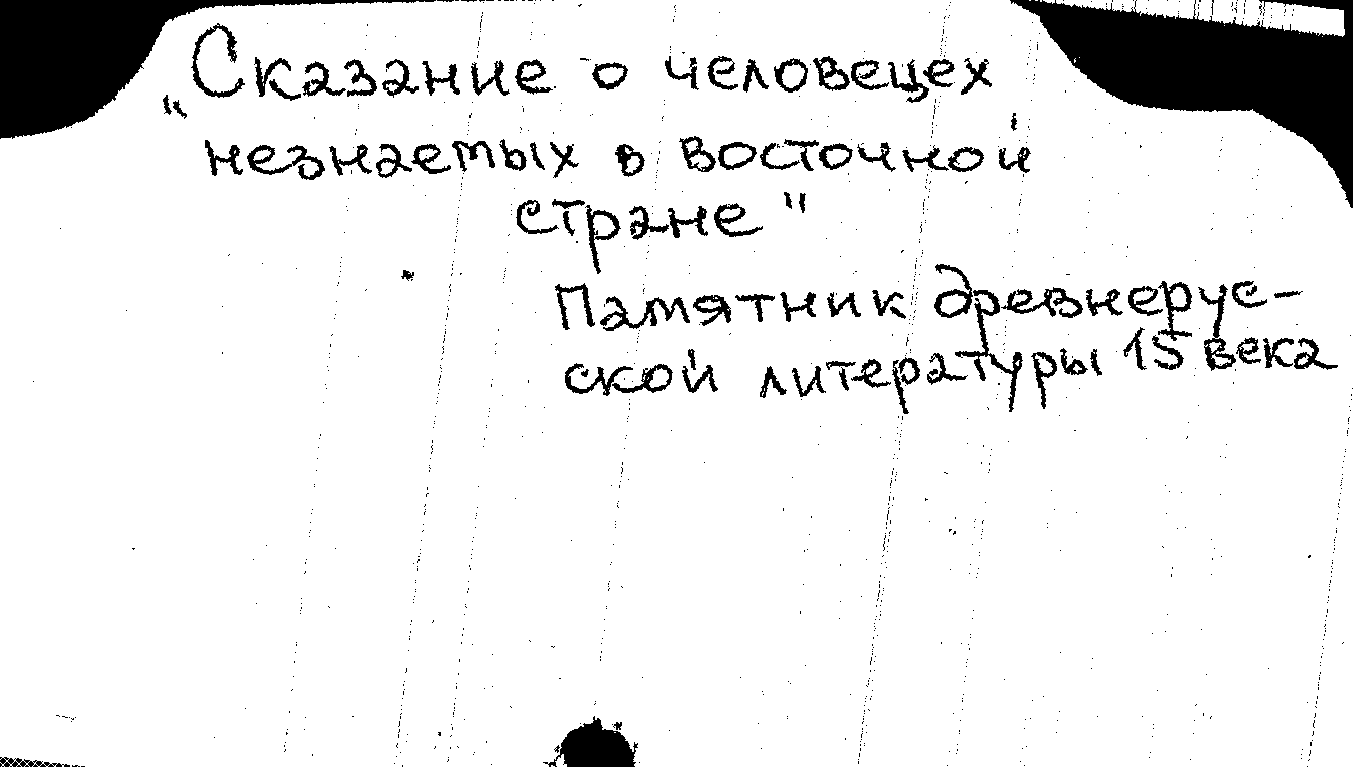 „Сказание о человецех
незнаемых в восточной
стране"
Памятник древнерус-
ской литературы 15 века